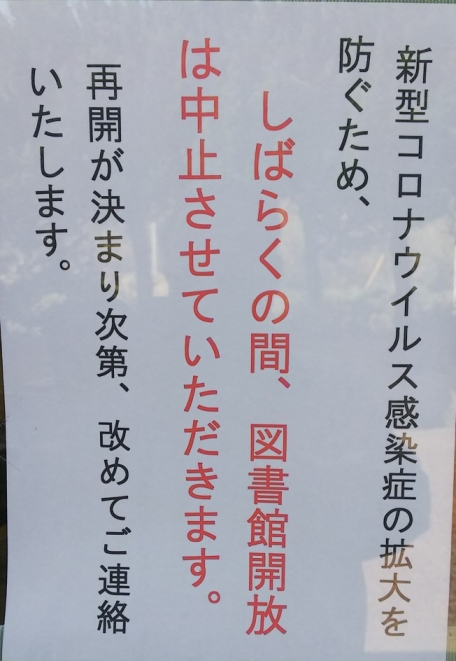 新型コロナウイルス感染症の拡大を
防ぐため、
しばらくの間、図書館開放
は中止させていただきます。
再開が決まり次第、改めてご連絡
いたします。